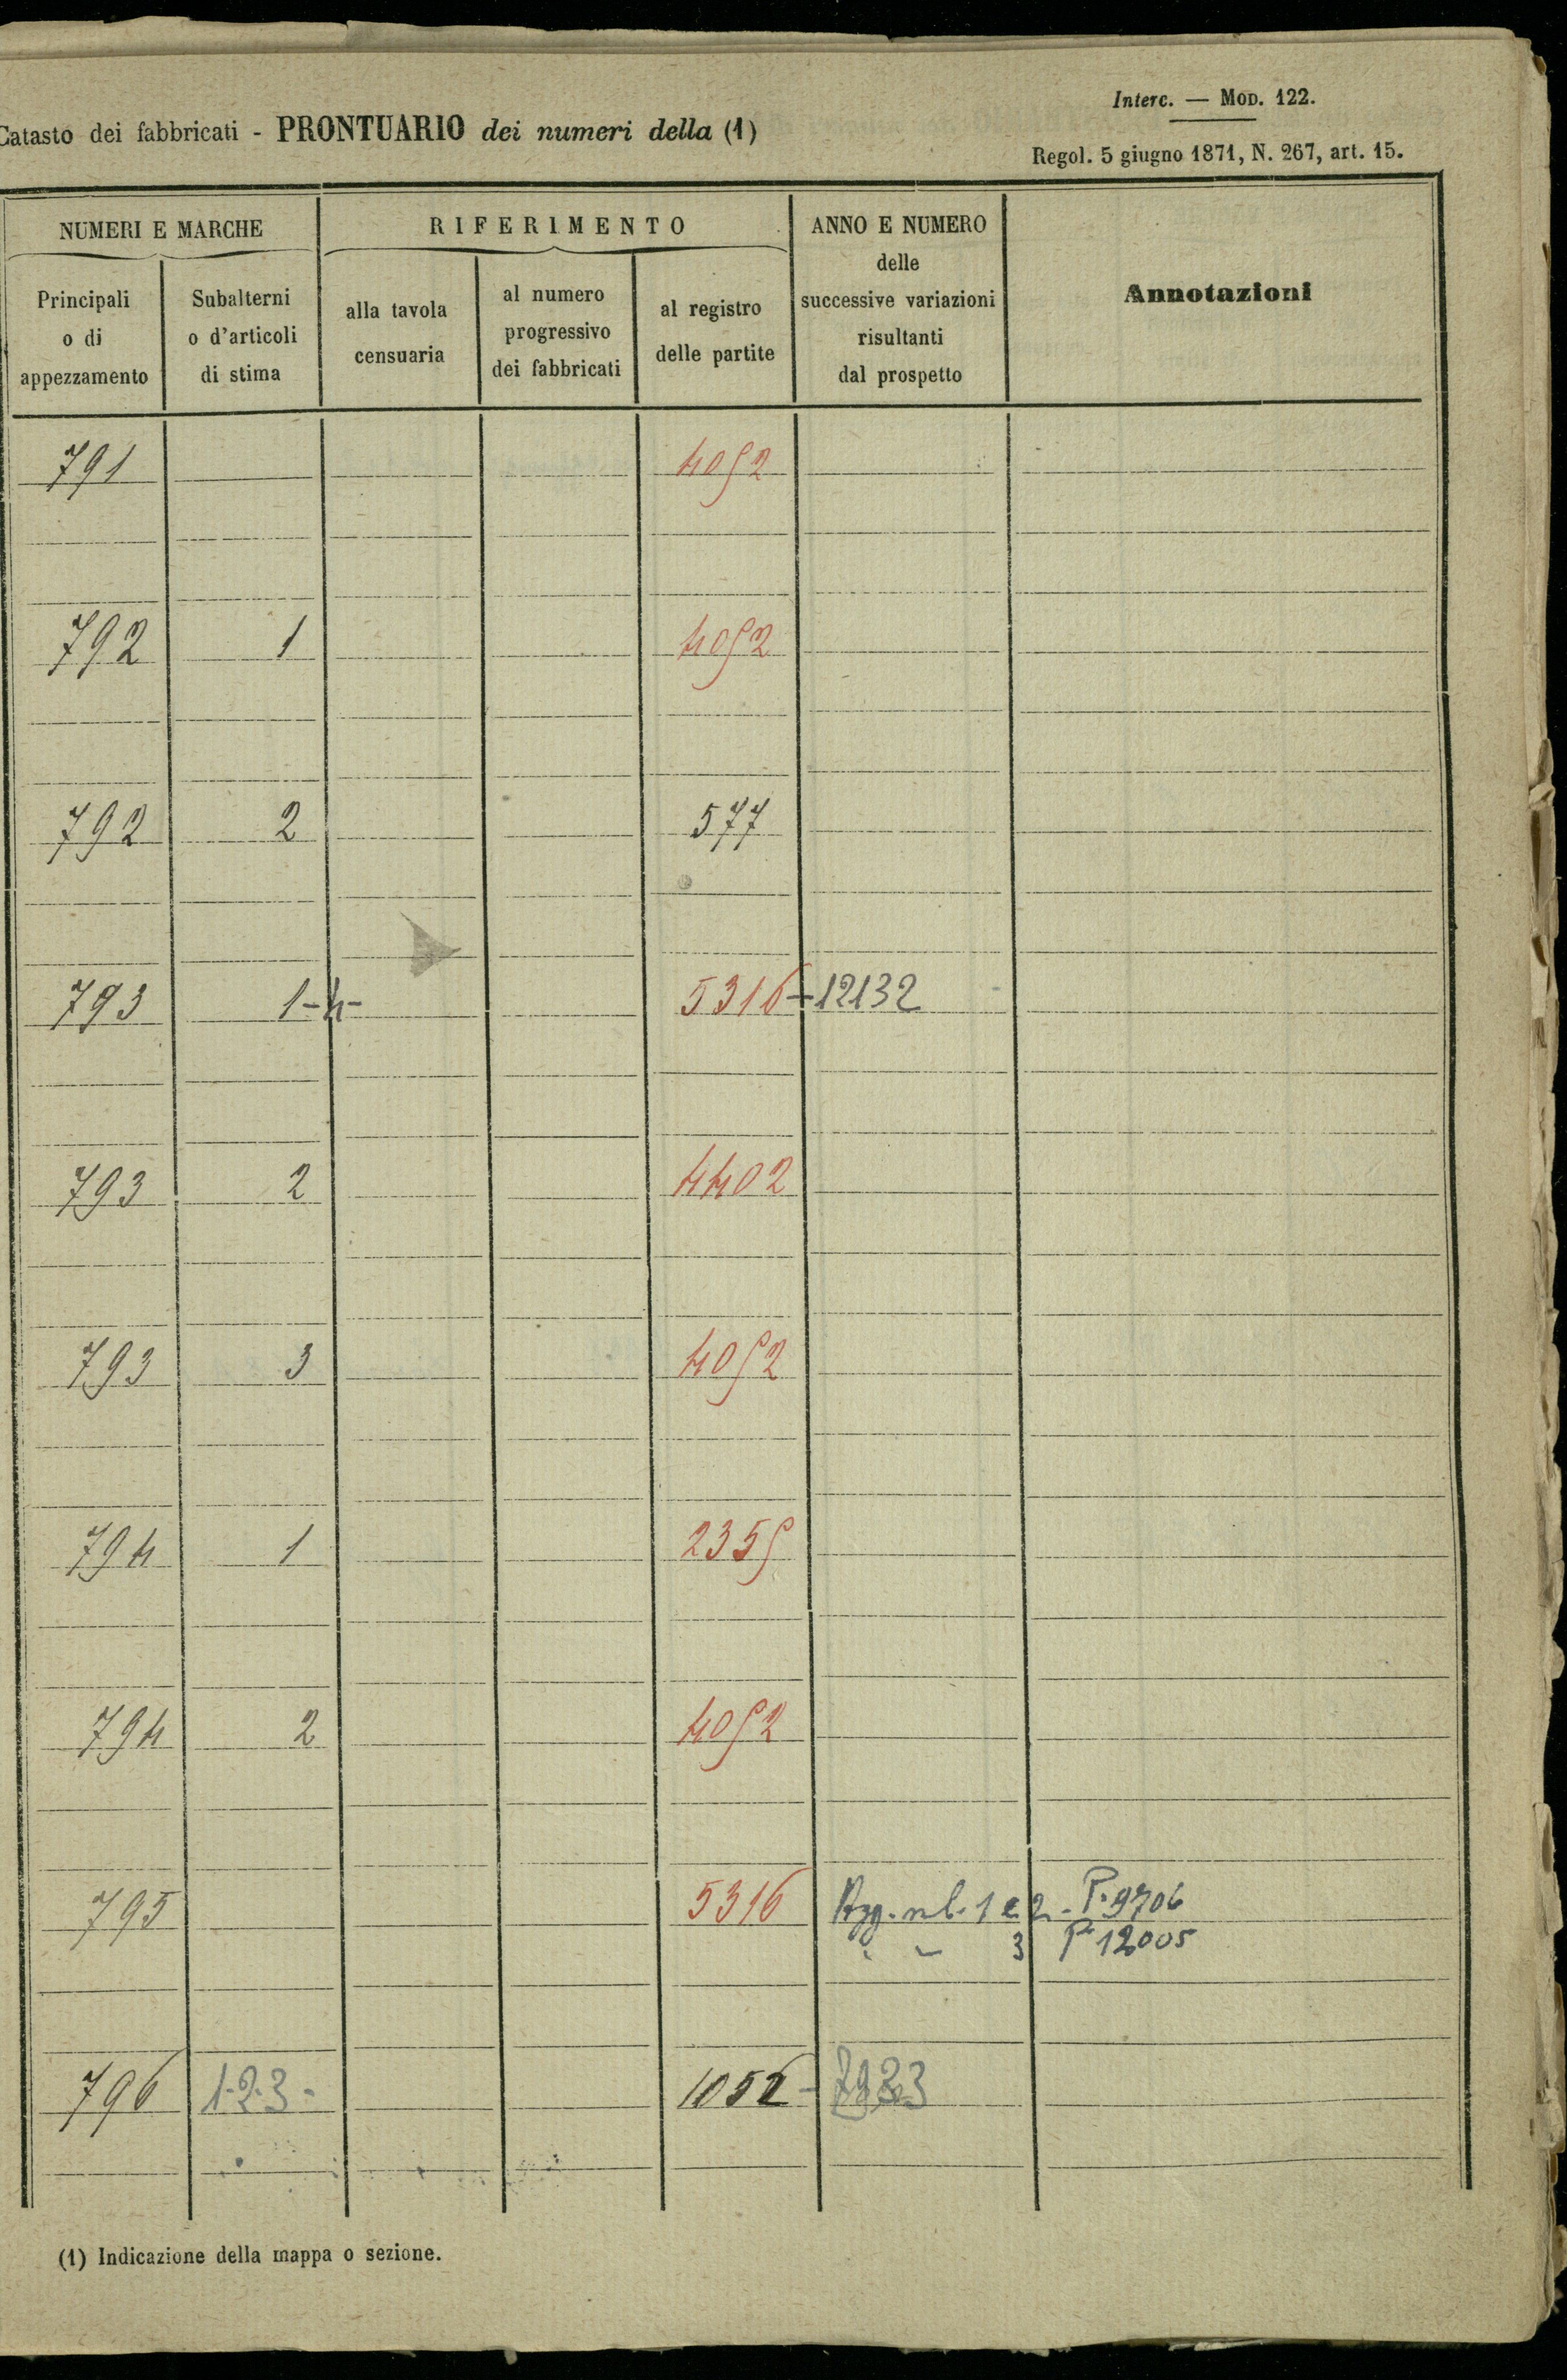 Interc. — Mod. 122.
Catasto dei fabbricati - PRONTUARIO dei numeri della (1)
Regol. 5 giugno 1871, N. 267, art. 15.
NUMERI E MARCHE RIFERIMENTO ANNO E NUMERO delle successive variazioni risultanti dal prospetto Annotazioni
Principali o di appezzamento Subalterni o d'articoli di stima alla tavola censuaria al numero progressivo dei fabbricati al registro delle partite
791 4052
792 1 4052
792 2 577
793 1-4- 5316-12132
793 2 4402
793 3 4052
794 1 2355
794 2 4052
795 5316 Agg. 1 e 2 - P. 9706
3 P 12005
796 1-2-3- 1052 -
(1) Indicazione della mappa o sezione.